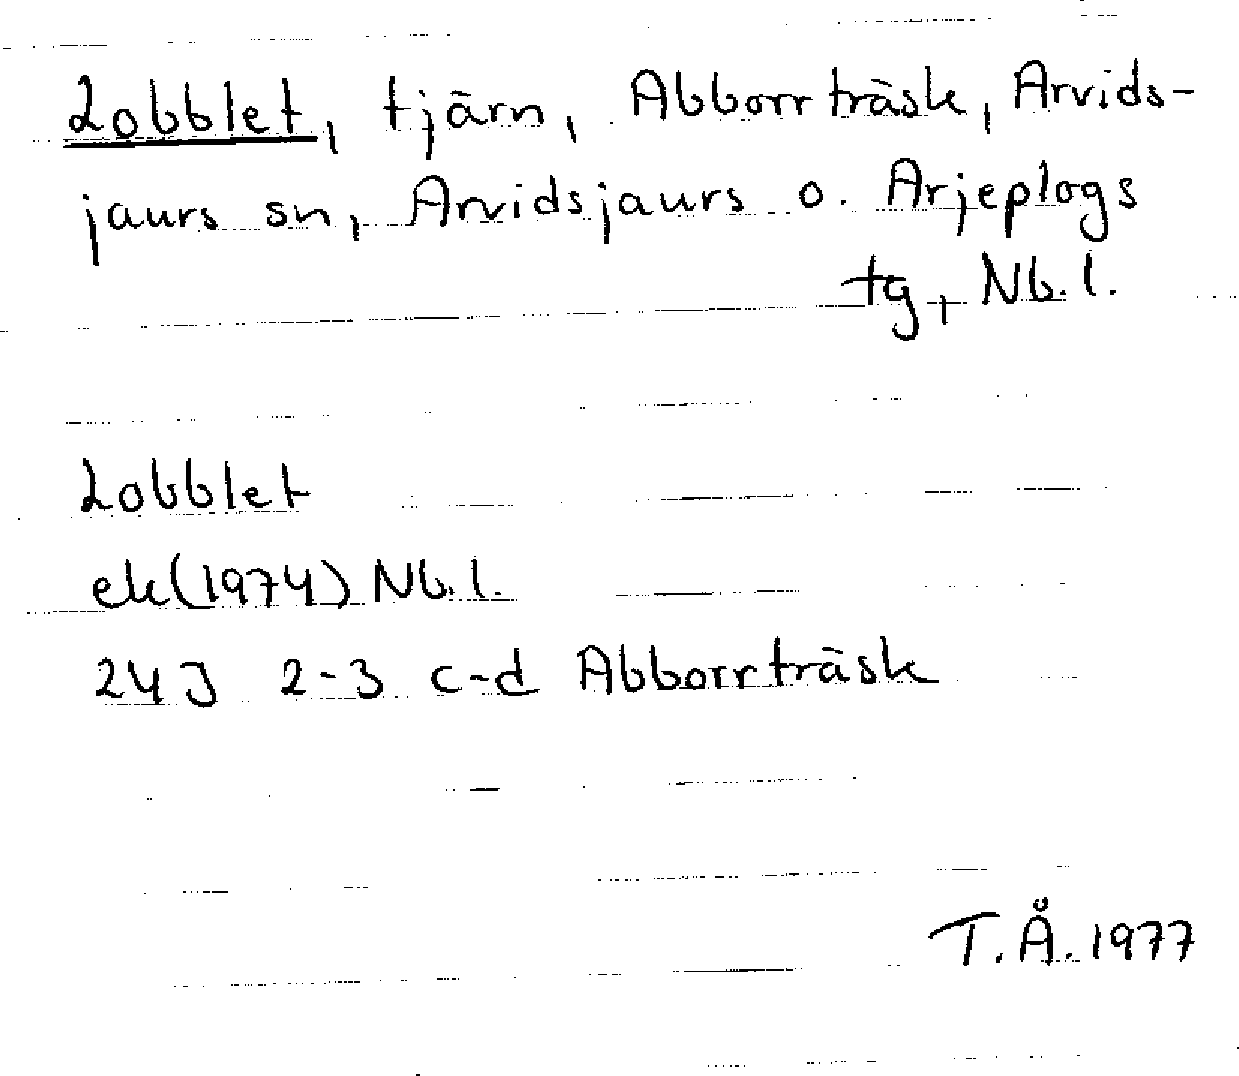 Lobblet, tjärn, Abborrträsk, Arvids-
jaurs sn, Arvidsjaurs o. Arjeplogs
tg, Nb.l.
Lobblet
ek(1974) Nb.l.
24J 2-3 c-d Abborrträsk
T.Å. 1977